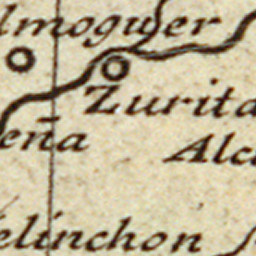 lmoguer
Zurita
eña
Alc
elinchon